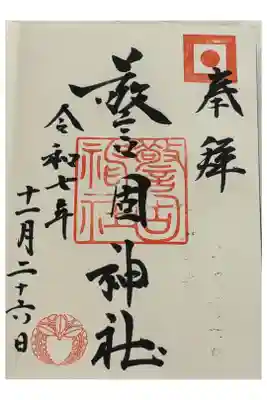 奉拜
警固神社
警固
神社
令和七年
十一月二十六日